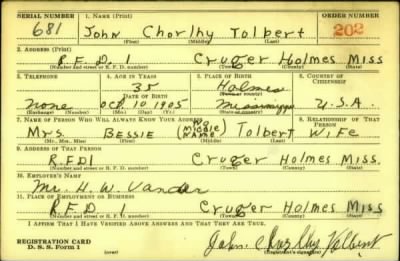 SERIAL NUMBER 1. NAME (Print) ORDER NUMBER
681 John Chorlhy Tolbert 202
(First) (Middle) (Last)
2. ADDRESS (Print)
R.F.D. 1 Cruger Holmes Miss
(Number and street or R. F. D. number) (Town) (County) (State)
3. TELEPHONE 4. AGE IN YEARS 5. PLACE OF BIRTH 6. COUNTRY OF CITIZENSHIP
35 Holmes
DATE OF BIRTH
none Oct. 10 1905 Mississippi U.S.A.
(Exchange) (Number) (Mo.) (Day) (Yr.) (State or country)
7. NAME OF PERSON WHO WILL ALWAYS KNOW YOUR ADDRESS 8. RELATIONSHIP OF THAT PERSON
Mrs. BESSIE (NO MIDDLE NAME) Tolbert WIFE
(Mr., Mrs., Miss) (First) (Middle) (Last)
9. ADDRESS OF THAT PERSON
R.F.D 1 Cruger Holmes Miss.
(Number and street or R. F. D. number) (Town) (County) (State)
10. EMPLOYER'S NAME
Mr. H. W. Vander
11. PLACE OF EMPLOYMENT OR BUSINESS
R.F.D 1 Cruger Holmes Miss
(Number and street or R. F. D. number) (Town) (County) (State)
I AFFIRM THAT I HAVE VERIFIED ABOVE ANSWERS AND THAT THEY ARE TRUE.
REGISTRATION CARD
D. S. S. Form 1 John Chorlhy Tolbert
(Registrant's signature)